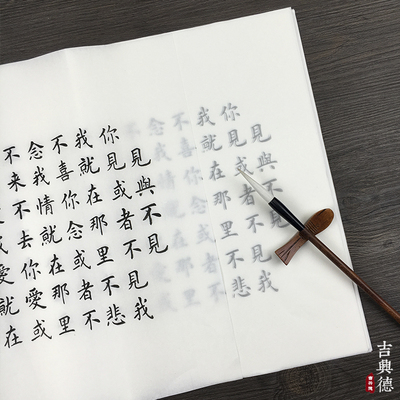 見與不見
你見或者不見我
我就在那里不悲
不喜你念或者不
念我情就在那里
不来不去你愛或
愛就在
見與不見
你見或者不見我
我就在那里不悲
不喜你念或者不
吉典德